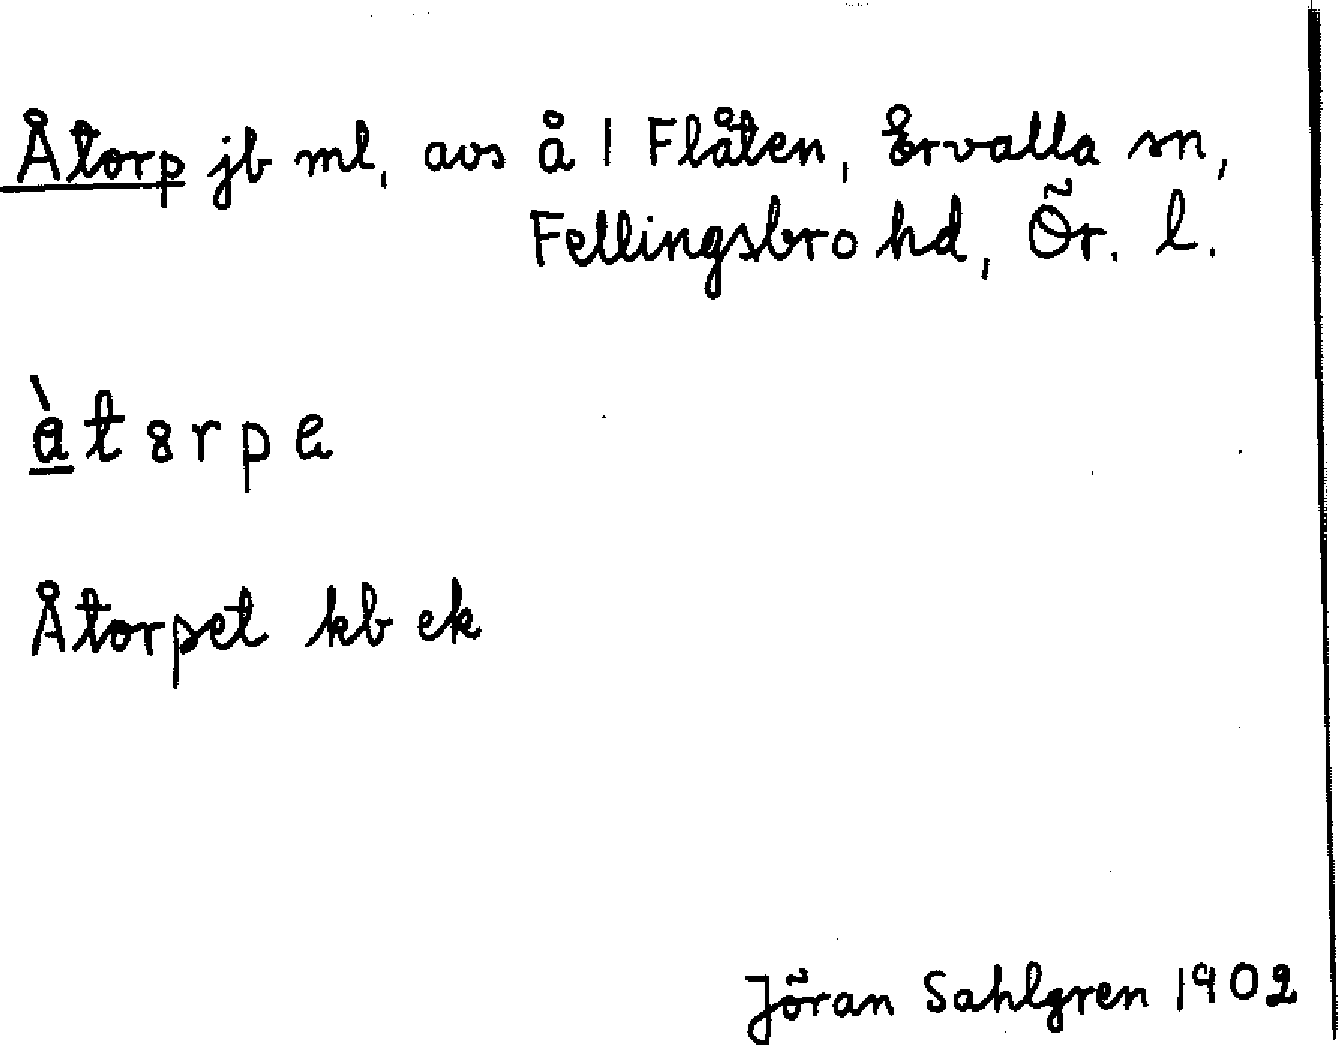 Åtorp jb ml, avs å 1 Flåten, Ervalla sn,
Fellingsbro hd, Ör. l.
àt8rpe
Åtorpet kb ek
Jöran Sahlgren 1902